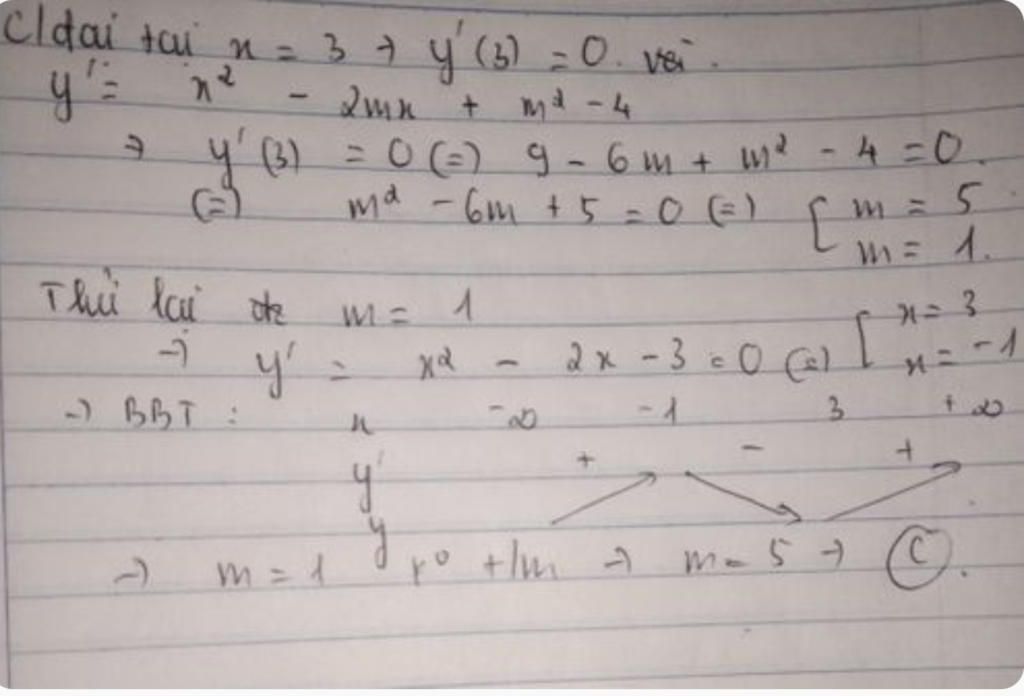 C/đại tại x = 3 → y'(3) = 0. với.
y' = x² - 2mx + m² - 4
→ y'(3) = 0 (=) 9 - 6m + m² - 4 = 0.
(=) m² - 6m + 5 = 0 (=) [ m = 5
m = 1.
Thử lại m = 1
→ y' = x² - 2x - 3 = 0 (=) [ x = 3
x = -1
→ BBT : x -∞ -1 3 +∞
y' + - +
y
→ m = 1 k° t/m → m = 5 → C.